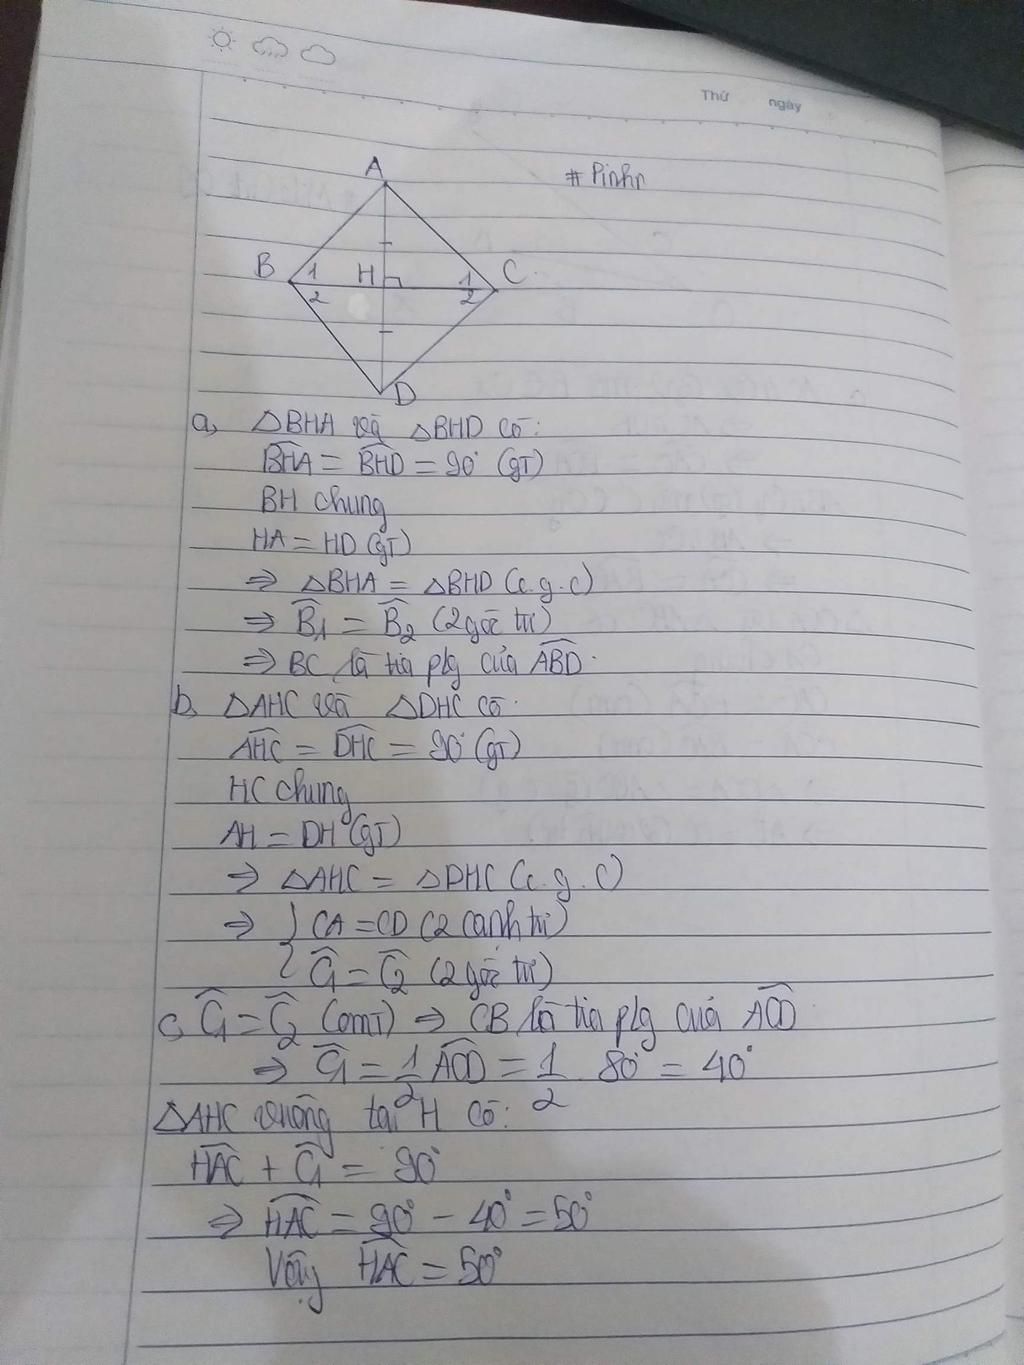 Thứ ngày
# Pinhn
A
B 1 H 1 C
2 2
D
a, △BHA và △BHD có:
B̂HA = B̂HD = 90° (gt)
BH chung
HA = HD (gt)
⇒ △BHA = △BHD (c.g.c)
⇒ B̂1 = B̂2 (2 góc tư)
⇒ BC là tia plg của ÂBD.
b, △AHC và △DHC có:
ÂHC = D̂HC = 90° (gt)
HC chung
AH = DH (gt)
⇒ △AHC = △DHC (c.g.c)
⇒ { CA = CD (2 cạnh tư)
{ Ĉ1 = Ĉ2 (2 góc tư)
c, Ĉ1 = Ĉ2 (cmt) ⇒ CB là tia plg của ÂCD
⇒ Ĉ1 = 1/2 ÂCD = 1/2 . 80° = 40°
△AHC vuông tại H có:
ĤAC + Ĉ1 = 90°
⇒ ĤAC = 90° - 40° = 50°
Vậy ĤAC = 50°